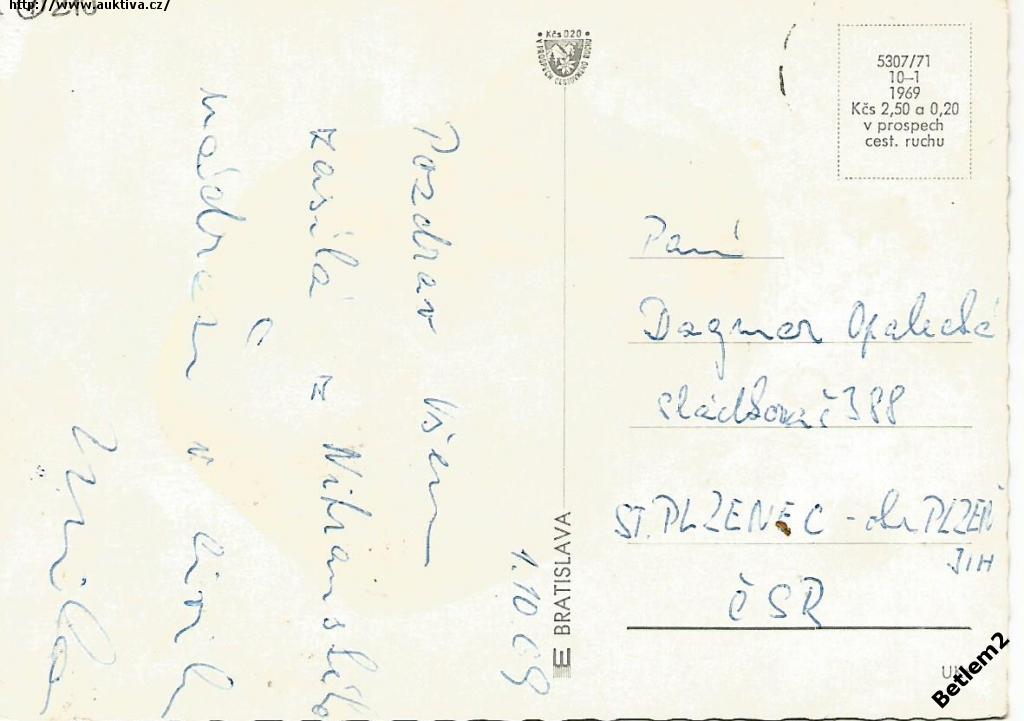 http://www.auktiva.cz/
Kčs 0.20
V PROSPECH CESTOVNÉHO RUCHU
5307/71
10–1
1969
Kčs 2,50 a 0,20
v prospech
cest. ruchu
1.10.69
Pozdrav všem
zasílá z
v
Míla
BRATISLAVA
Paní
Dagmar Opalecká
Sládkova č 388
ST. PLZENEC - okr PLZEŇ
JIH
ČSR
Betlem2